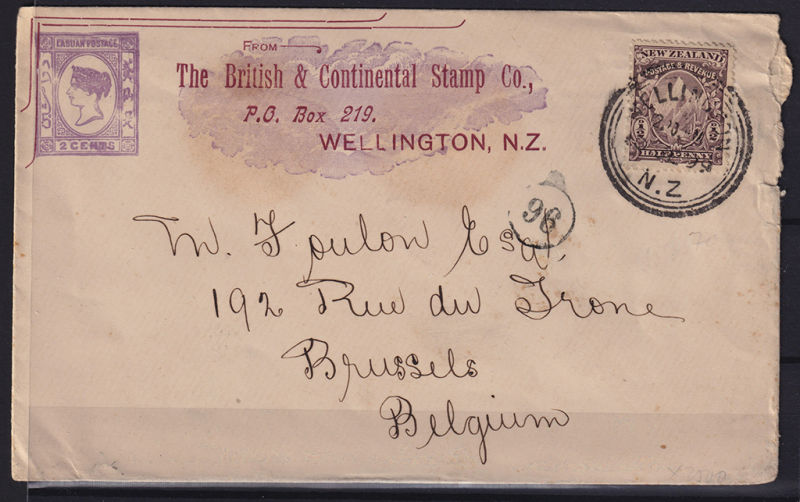 LABUAN POSTAGE
2 CENTS
FROM
The British & Continental Stamp Co.,
P.O. Box 219.
WELLINGTON, N.Z.
NEW ZEALAND
POSTAGE & REVENUE
HALF PENNY
WELLINGTON
N.Z
96
M. Foulon Esq.
192 Rue du Trone
Brussels
Belgium